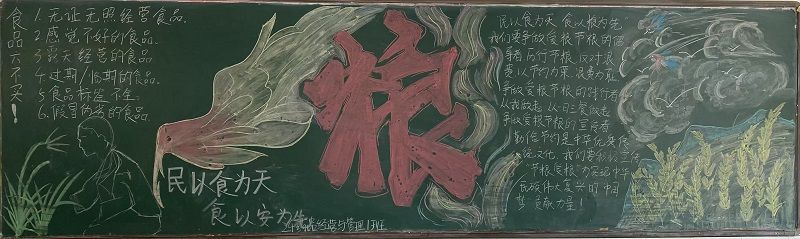 食品六不买！
1.无证无照经营食品
2.感觉不好的食品
3.露天经营的食品
4.过期/临期的食品
5.食品标签不全
6.假冒伪劣的食品
民以食为天
食以安为先
经营与管理1班
粮
民以食为天 食以粮为先
我们要争做爱粮节粮的倡
导者 厉行节粮 反对浪
费以节约为荣 浪费为耻
争做爱粮节粮的践行者
从我做起 从一日三餐做起
争做爱粮节粮的宣传者
勤俭节约是中华优秀传
统文化 我们要积极宣传
节粮爱粮 为实现中华
民族伟大复兴的中国
梦贡献力量！